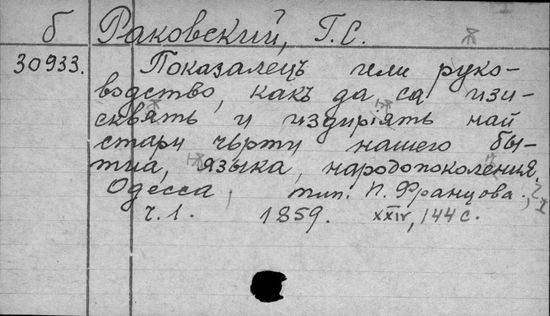 б Раковский, Г.С.
30933. Показалецъ или руко-
водство, какъ да са изи-
сквѫтъ и издирiятъ най
стари чьрти нашего бы-
тиа, языка, народопоколения,
Одесса, тип. П. Францова.
ч. 1. 1859. XXIV, 144 с.